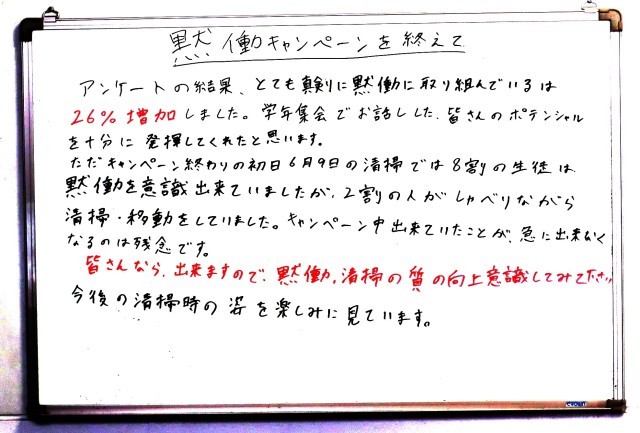 黙働キャンペーンを終えて
アンケートの結果、とても真剣に黙働に取り組んでいるは
26％増加しました。学年集会でお話しした、皆さんのポテンシャル
を十分に発揮してくれたと思います。
ただキャンペーン終わりの初日6月9日の清掃では8割の生徒は
黙働を意識出来ていましたが、2割の人がしゃべりながら
清掃・移動をしていました。キャンペーン中出来ていたことが、急に出来なく
なるのは残念です。
皆さんなら、出来ますので、黙働、清掃の質の向上意識してみて下さい
今後の清掃時の姿を楽しみに見ています。